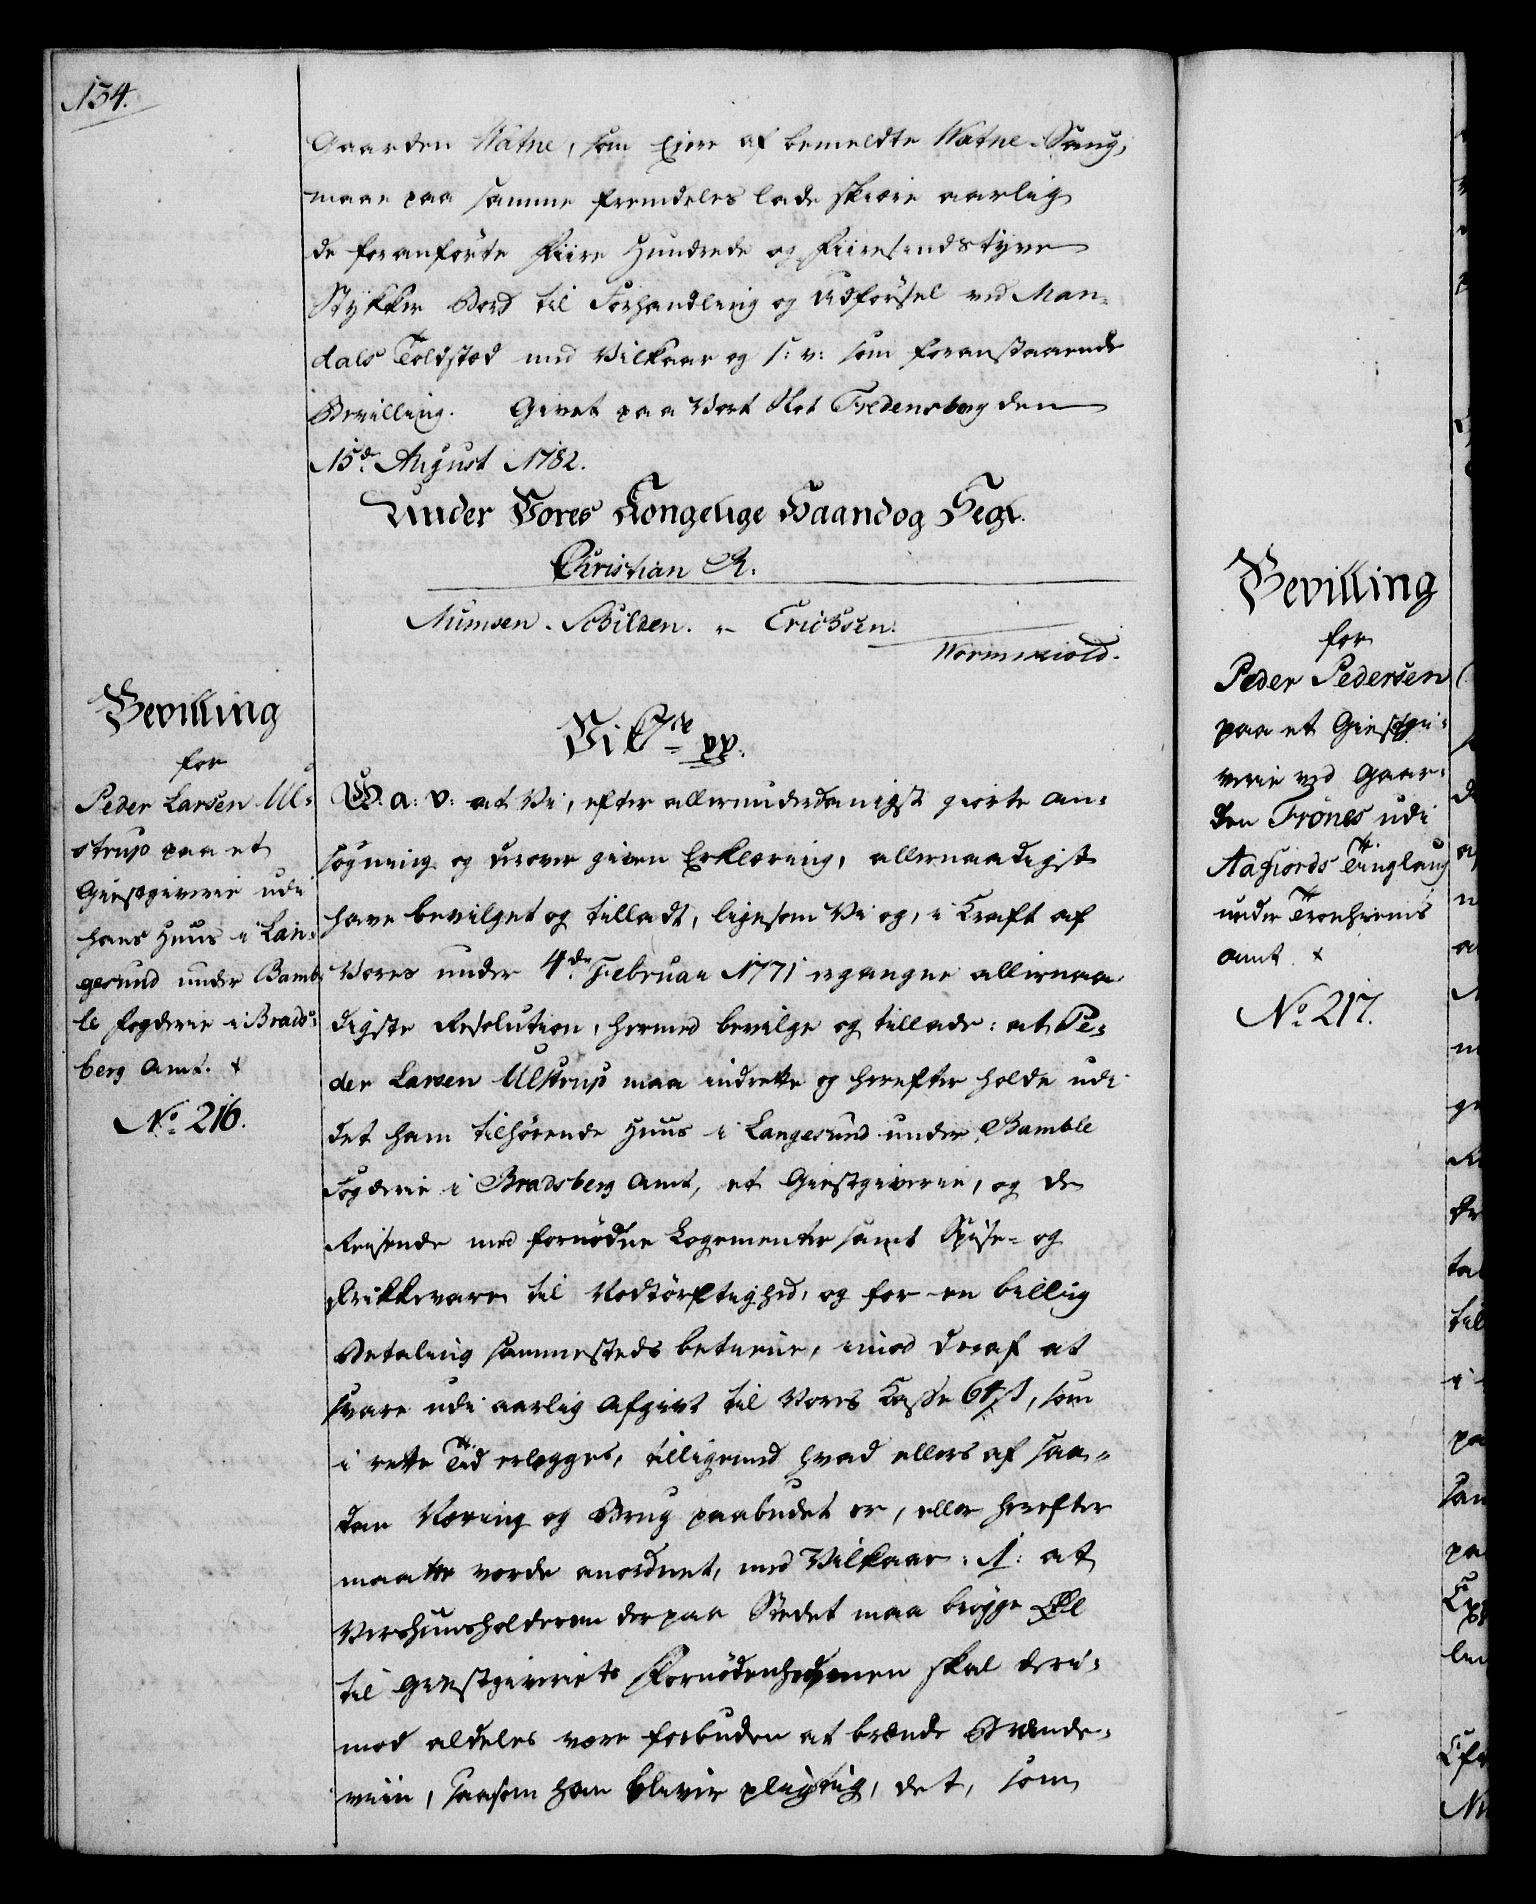 134.
Gaarden Watne, som Ejere af bemeldte Watne-Saug,
maae paa samme fremdeles lade skiære aarlig
de foranførte Fiire Hundrede og Fiiresindstyve
Stykker Bord til Forhandling og Udførsel ved Man-
dals Toldsted med Vilkaar og s: v: som foranstaaende
Bevilling. Givet paa Vort Slot Fredensborg den
15de August 1782.
Under Vores Kongelige Haand og Segl.
Christian R.
Numsen. Schilden. Erichsen.
Wormskiold.
Bevilling
for
Peder Larsen Ul-
strup paa et
Giestgiverie udi
hans Huus i Lan-
gesund under Bamb-
le Fogderie i Brads-
berg Amt.
No. 216.
Vi C 7de pp.
G. a: v: at Vi, efter allerunderdanigst giorte An-
søgning og derover given Erklæring, allernaadigst
have bevilget og tilladt, ligesom Vi og, i Kraft af
Vores under 4de Februar 1771 ergangne allernaa
digste Resolution, hermed bevilge og tillade: at Pe-
der Larsen Ulstrup maa indrette og herefter holde udi
det ham tilhørende Huus i Langesund under Bamble
Fogderie i Bradsberg Amt, et Giestgiverie, og de
Reisende med fornødne Logementer samt Spise- og
Drikkevarer til Nødtørftighed, og for en billig
Betaling sammesteds betiene, imod deraf at
svare udi aarlig Afgivt til Vores Casse 64 ß, som
i rette Tid erlegges, tilligemed hvad ellers af saa-
dan Næring og Brug paabudet er, eller herefter
maatte vorde anordnet, med Vilkaar: 1: at
Vertshuusholderen der paa Stedet maa brygge Øll
til Giestgiveriets Fornødenhed, men skal deri-
mod aldeles være forbuden at brænde Brænde-
viin, saasom han bliver pligtig, det, som
Bevilling
for
Peder Pedersen
paa et Giestgi-
verie ved Gaar-
den Frönes udi
Aafiords Tinglaug
under Tronhiems
Amt.
No. 217.